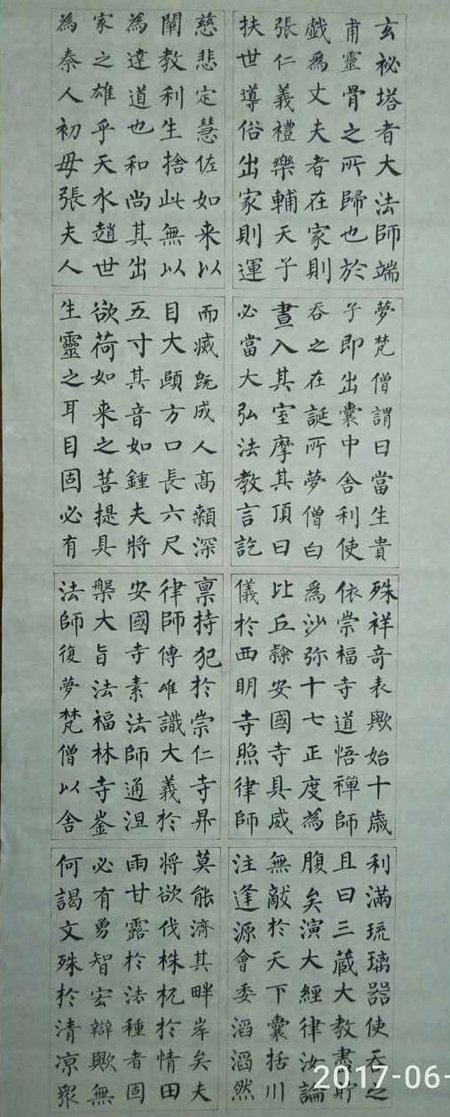 玄祕塔者大法師端
甫靈骨之所歸也於
戲為丈夫者在家則
張仁義禮樂輔天子
扶世導俗出家則運
慈悲定慧佐如来以
闡教利生捨此無以
為達道也和尚其出
家之雄乎天水趙世
為秦人初毋張夫人
夢梵僧謂曰當生貴
子即出囊中舍利使
吞之在誕所夢僧白
晝入其室摩其頂曰
必當大弘法教言訖
而滅既成人高顙深
目大頤方口長六尺
五寸其音如鍾夫將
欲荷如来之菩提具
生靈之耳目固必有
殊祥奇表歟始十歲
依崇福寺道悟禪師
為沙弥十七正度為
比丘隸安國寺具威
儀於西明寺照律師
禀持犯於崇仁寺昇
律師傳唯識大義於
安國寺素法師通涅
槃大旨法福林寺崟
法師復夢梵僧以舍
利滿琉璃器使吞之
且曰三藏大教盡貯
腹矣演大經律汝論
無敵於天下囊括川
注逢源會委滔滔然
莫能濟其畔岸矣夫
將欲伐株杌於情田
雨甘露於法種者固
必有勇智宏辯歟無
何謁文殊於清凉眾
2017-06-